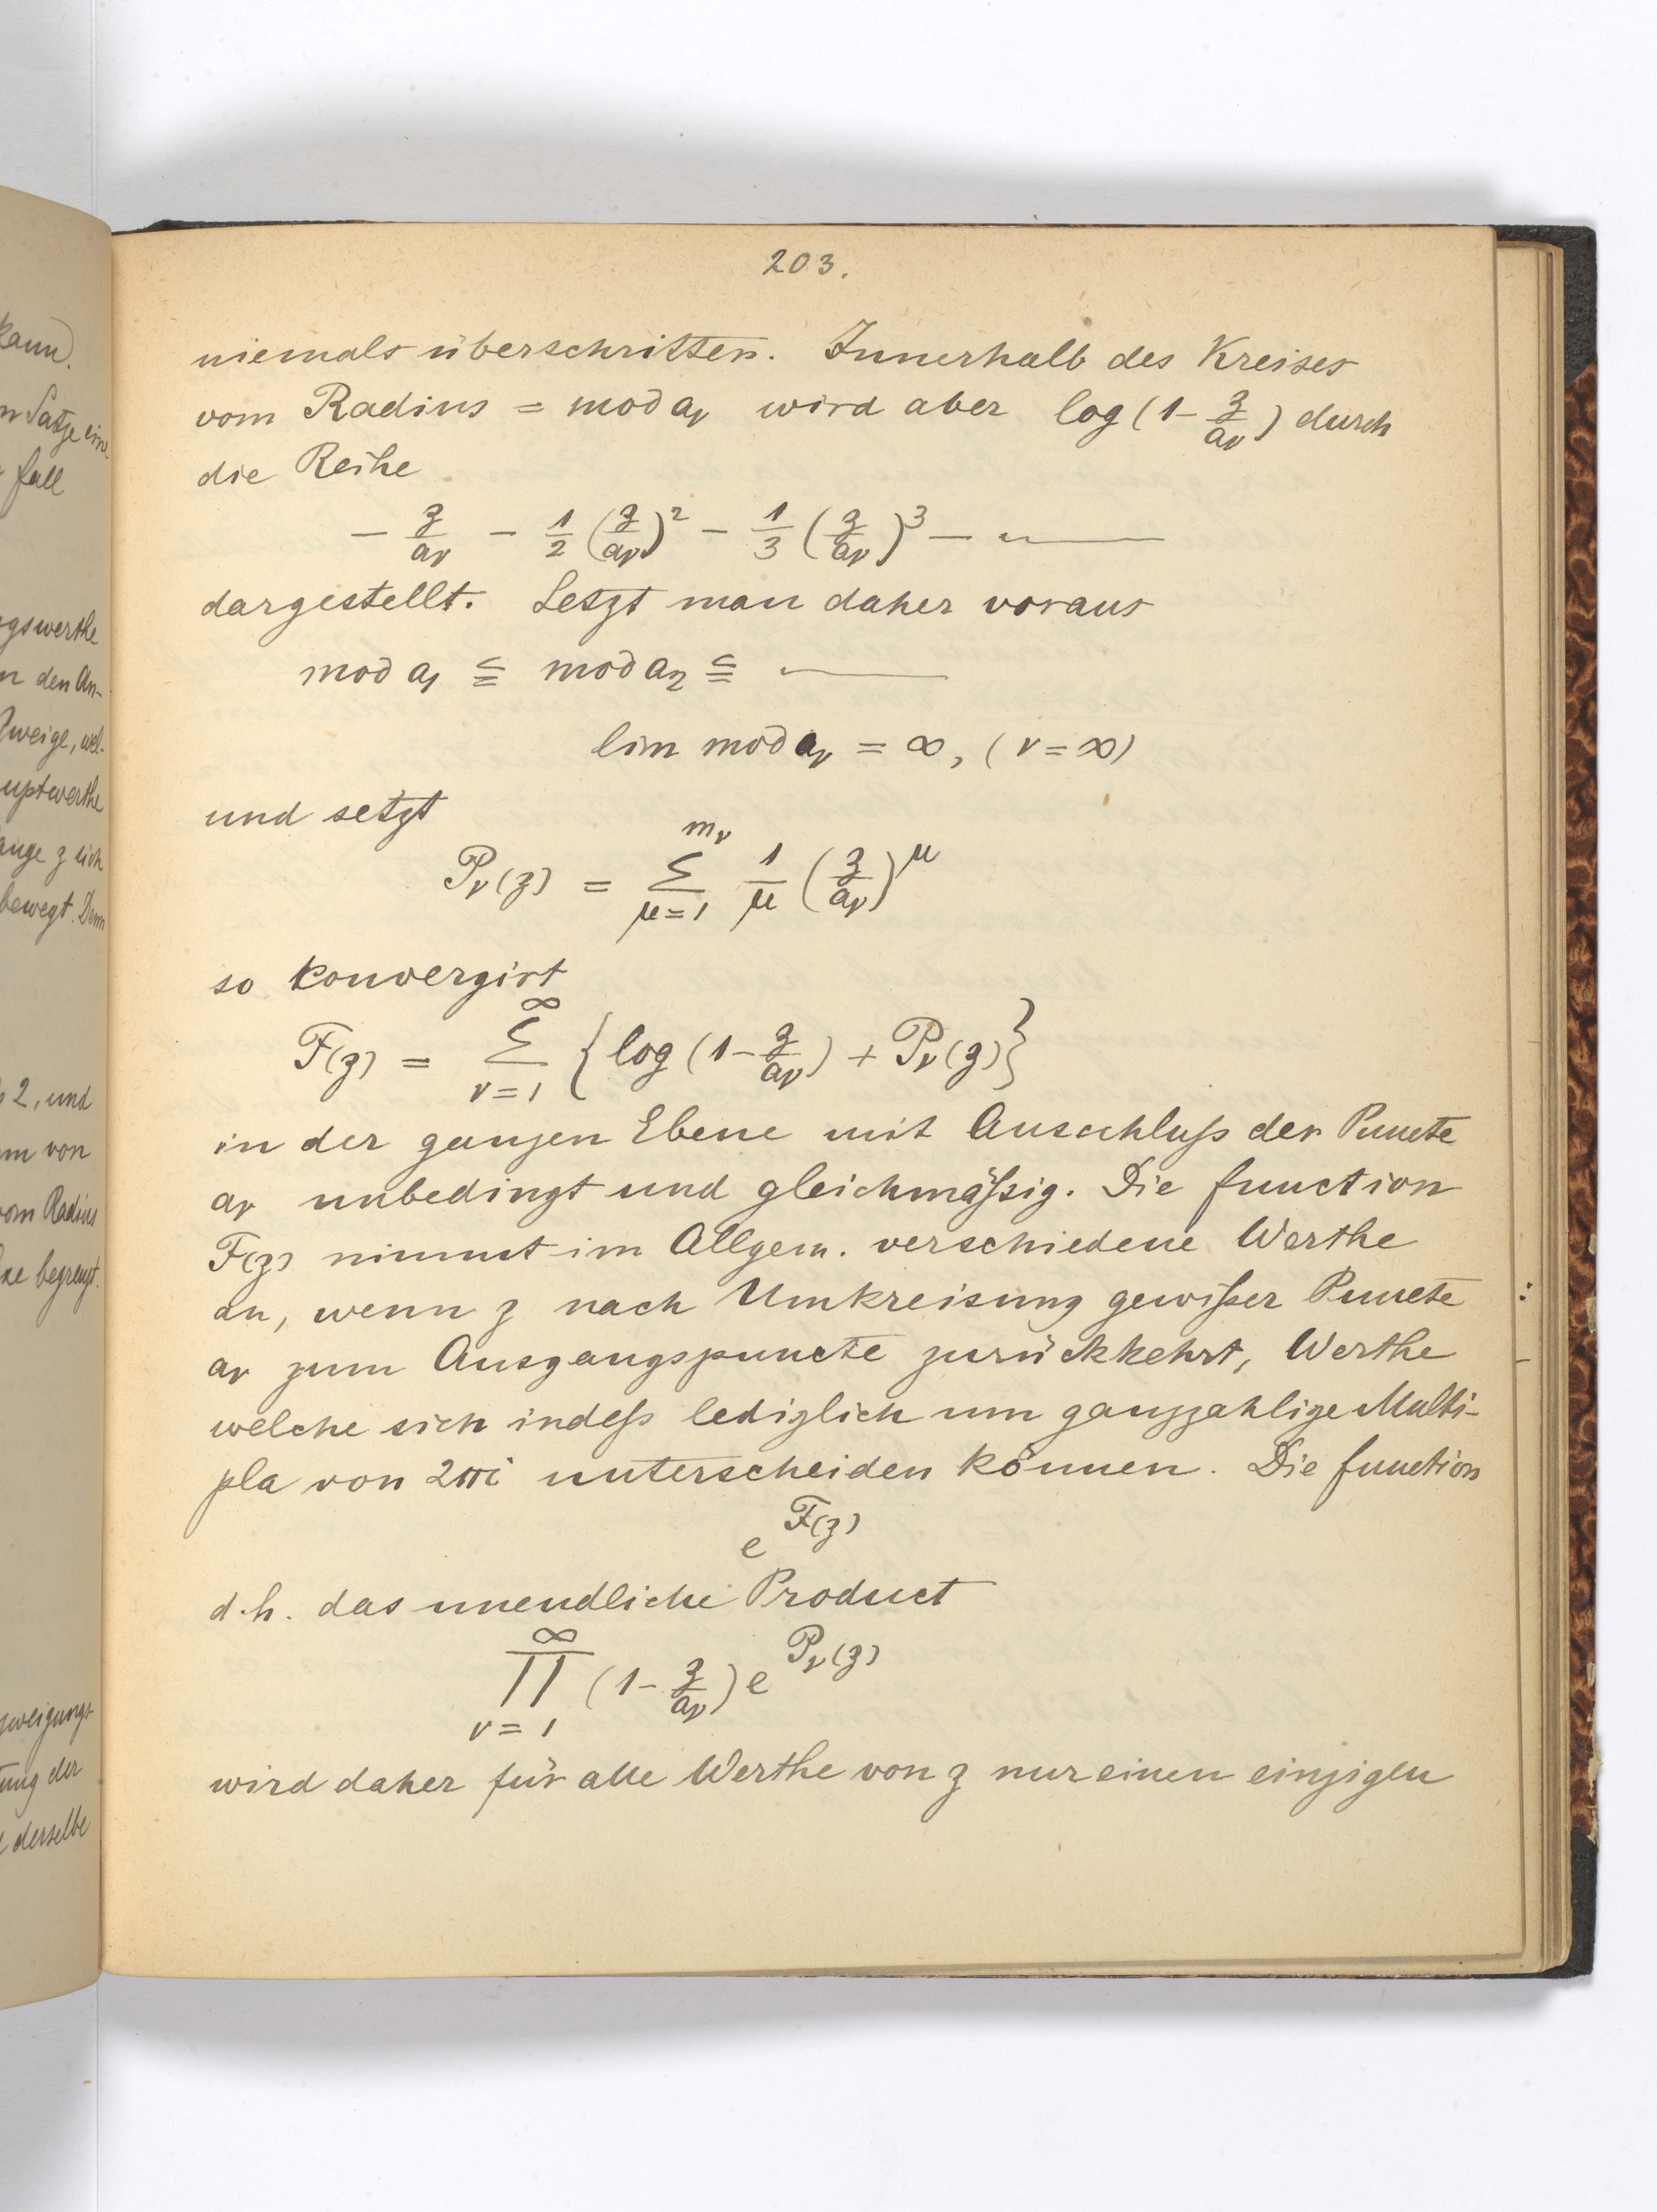 kann.
n Satze ein-
fall
gswerthe
n den An-
Zweige, wel-
uptwerthe
ange z sich
bewegt. Denn
2, und
m von
vom Radius
xe begrenzt.
zweigungs-
tung der
derselbe
203.
niemals überschritten. Innerhalb des Kreises
vom Radius = mod aᵥ wird aber log (1 - z/aᵥ) durch
die Reihe
- z/aᵥ - 1/2 (z/aᵥ)² - 1/3 (z/aᵥ)³ - ——
dargestellt. Setzt man daher voraus
mod a₁ ≦ mod a₂ ≦ ——
lim mod aᵥ = ∞, (ν = ∞)
und setzt
Pᵥ(z) = Σ_{μ=1}^{mᵥ} 1/μ (z/aᵥ)^μ
so konvergirt
F(z) = Σ_{ν=1}^{∞} {log (1 - z/aᵥ) + Pᵥ(z)}
in der ganzen Ebene mit Ausschluß der Puncte
aᵥ unbedingt und gleichmäßig. Die function
F(z) nimmt im Allgem. verschiedene Werthe
an, wenn z nach Umkreisung gewißer Puncte
aᵥ zum Ausgangspuncte zurückkehrt, Werthe
welche sich indeß lediglich um ganzzahlige Multi-
pla von 2πi unterscheiden können. Die function
e^{F(z)}
d.h. das unendliche Product
∏_{ν=1}^{∞} (1 - z/aᵥ) e^{Pᵥ(z)}
wird daher für alle Werthe von z nur einen einzigen